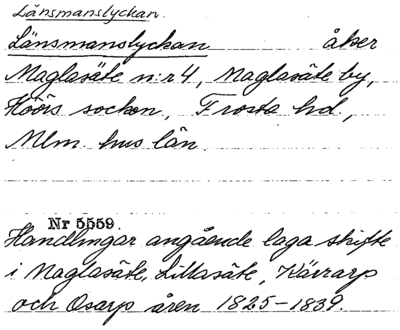 Länsmanslyckan.
Länsmanslyckan åker
Maglasäte n:r 4, Maglasäte by,
Höörs socken, Frosta hd.,
Mlm. hus län.
Nr 5559.
Handlingar angående laga skifte
i Maglasäte, Lillasäte, Kärrarp
och Osarp åren 1825-1839.